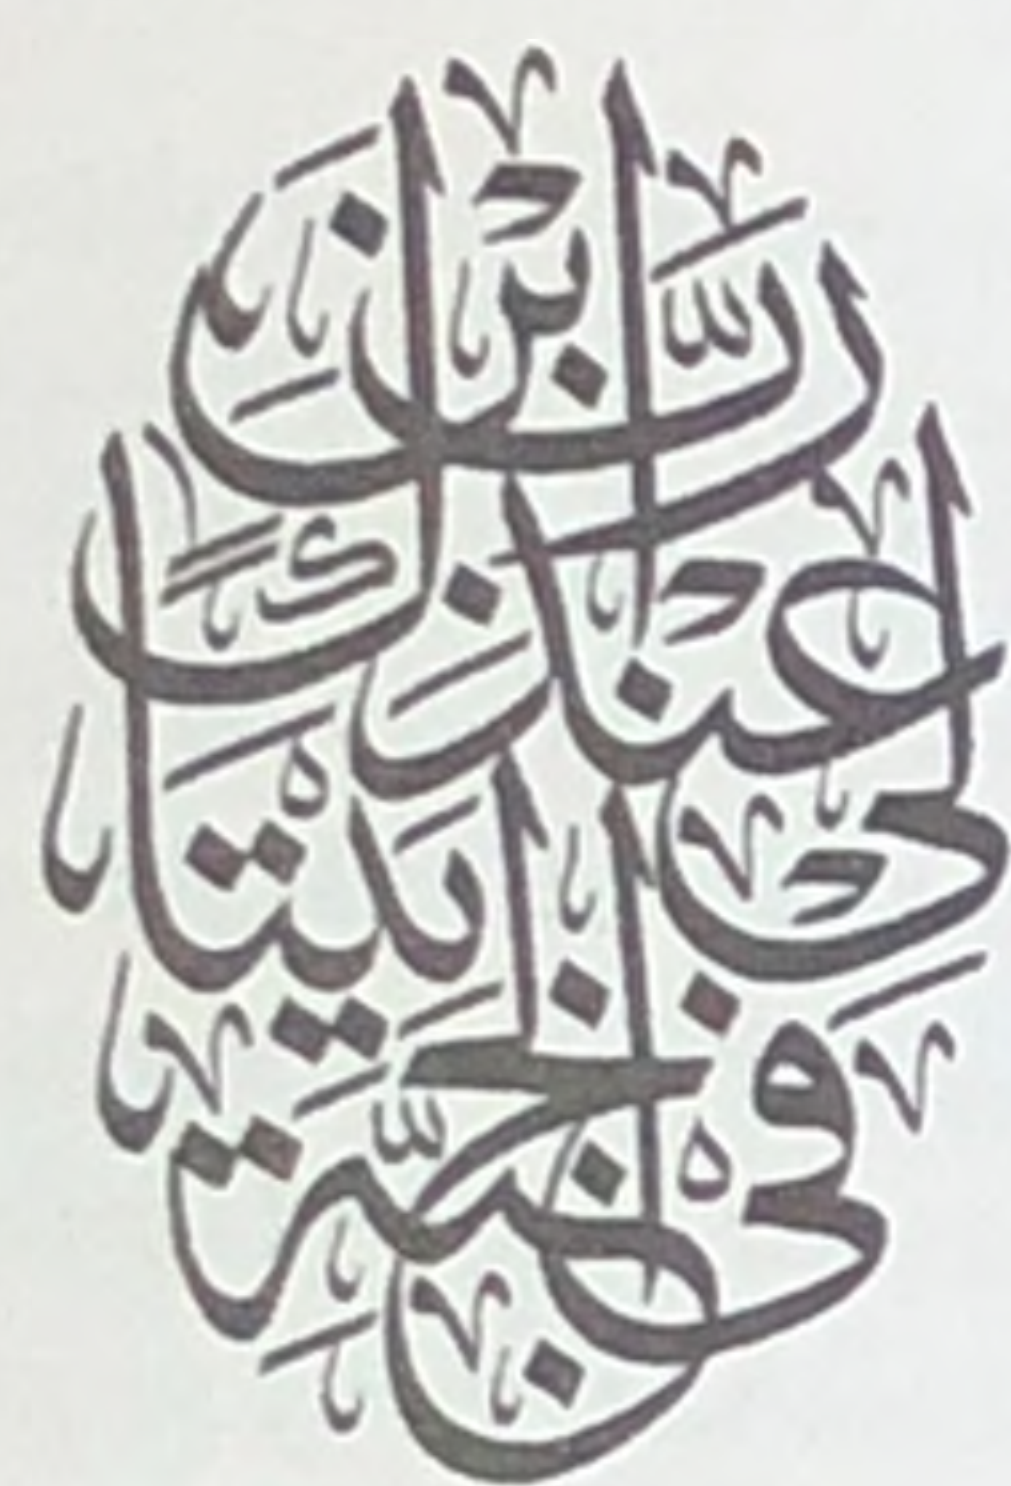 رَبِّ ابْنِ
لِي عِندَكَ
بَيْتًا
فِي الْجَنَّةِ